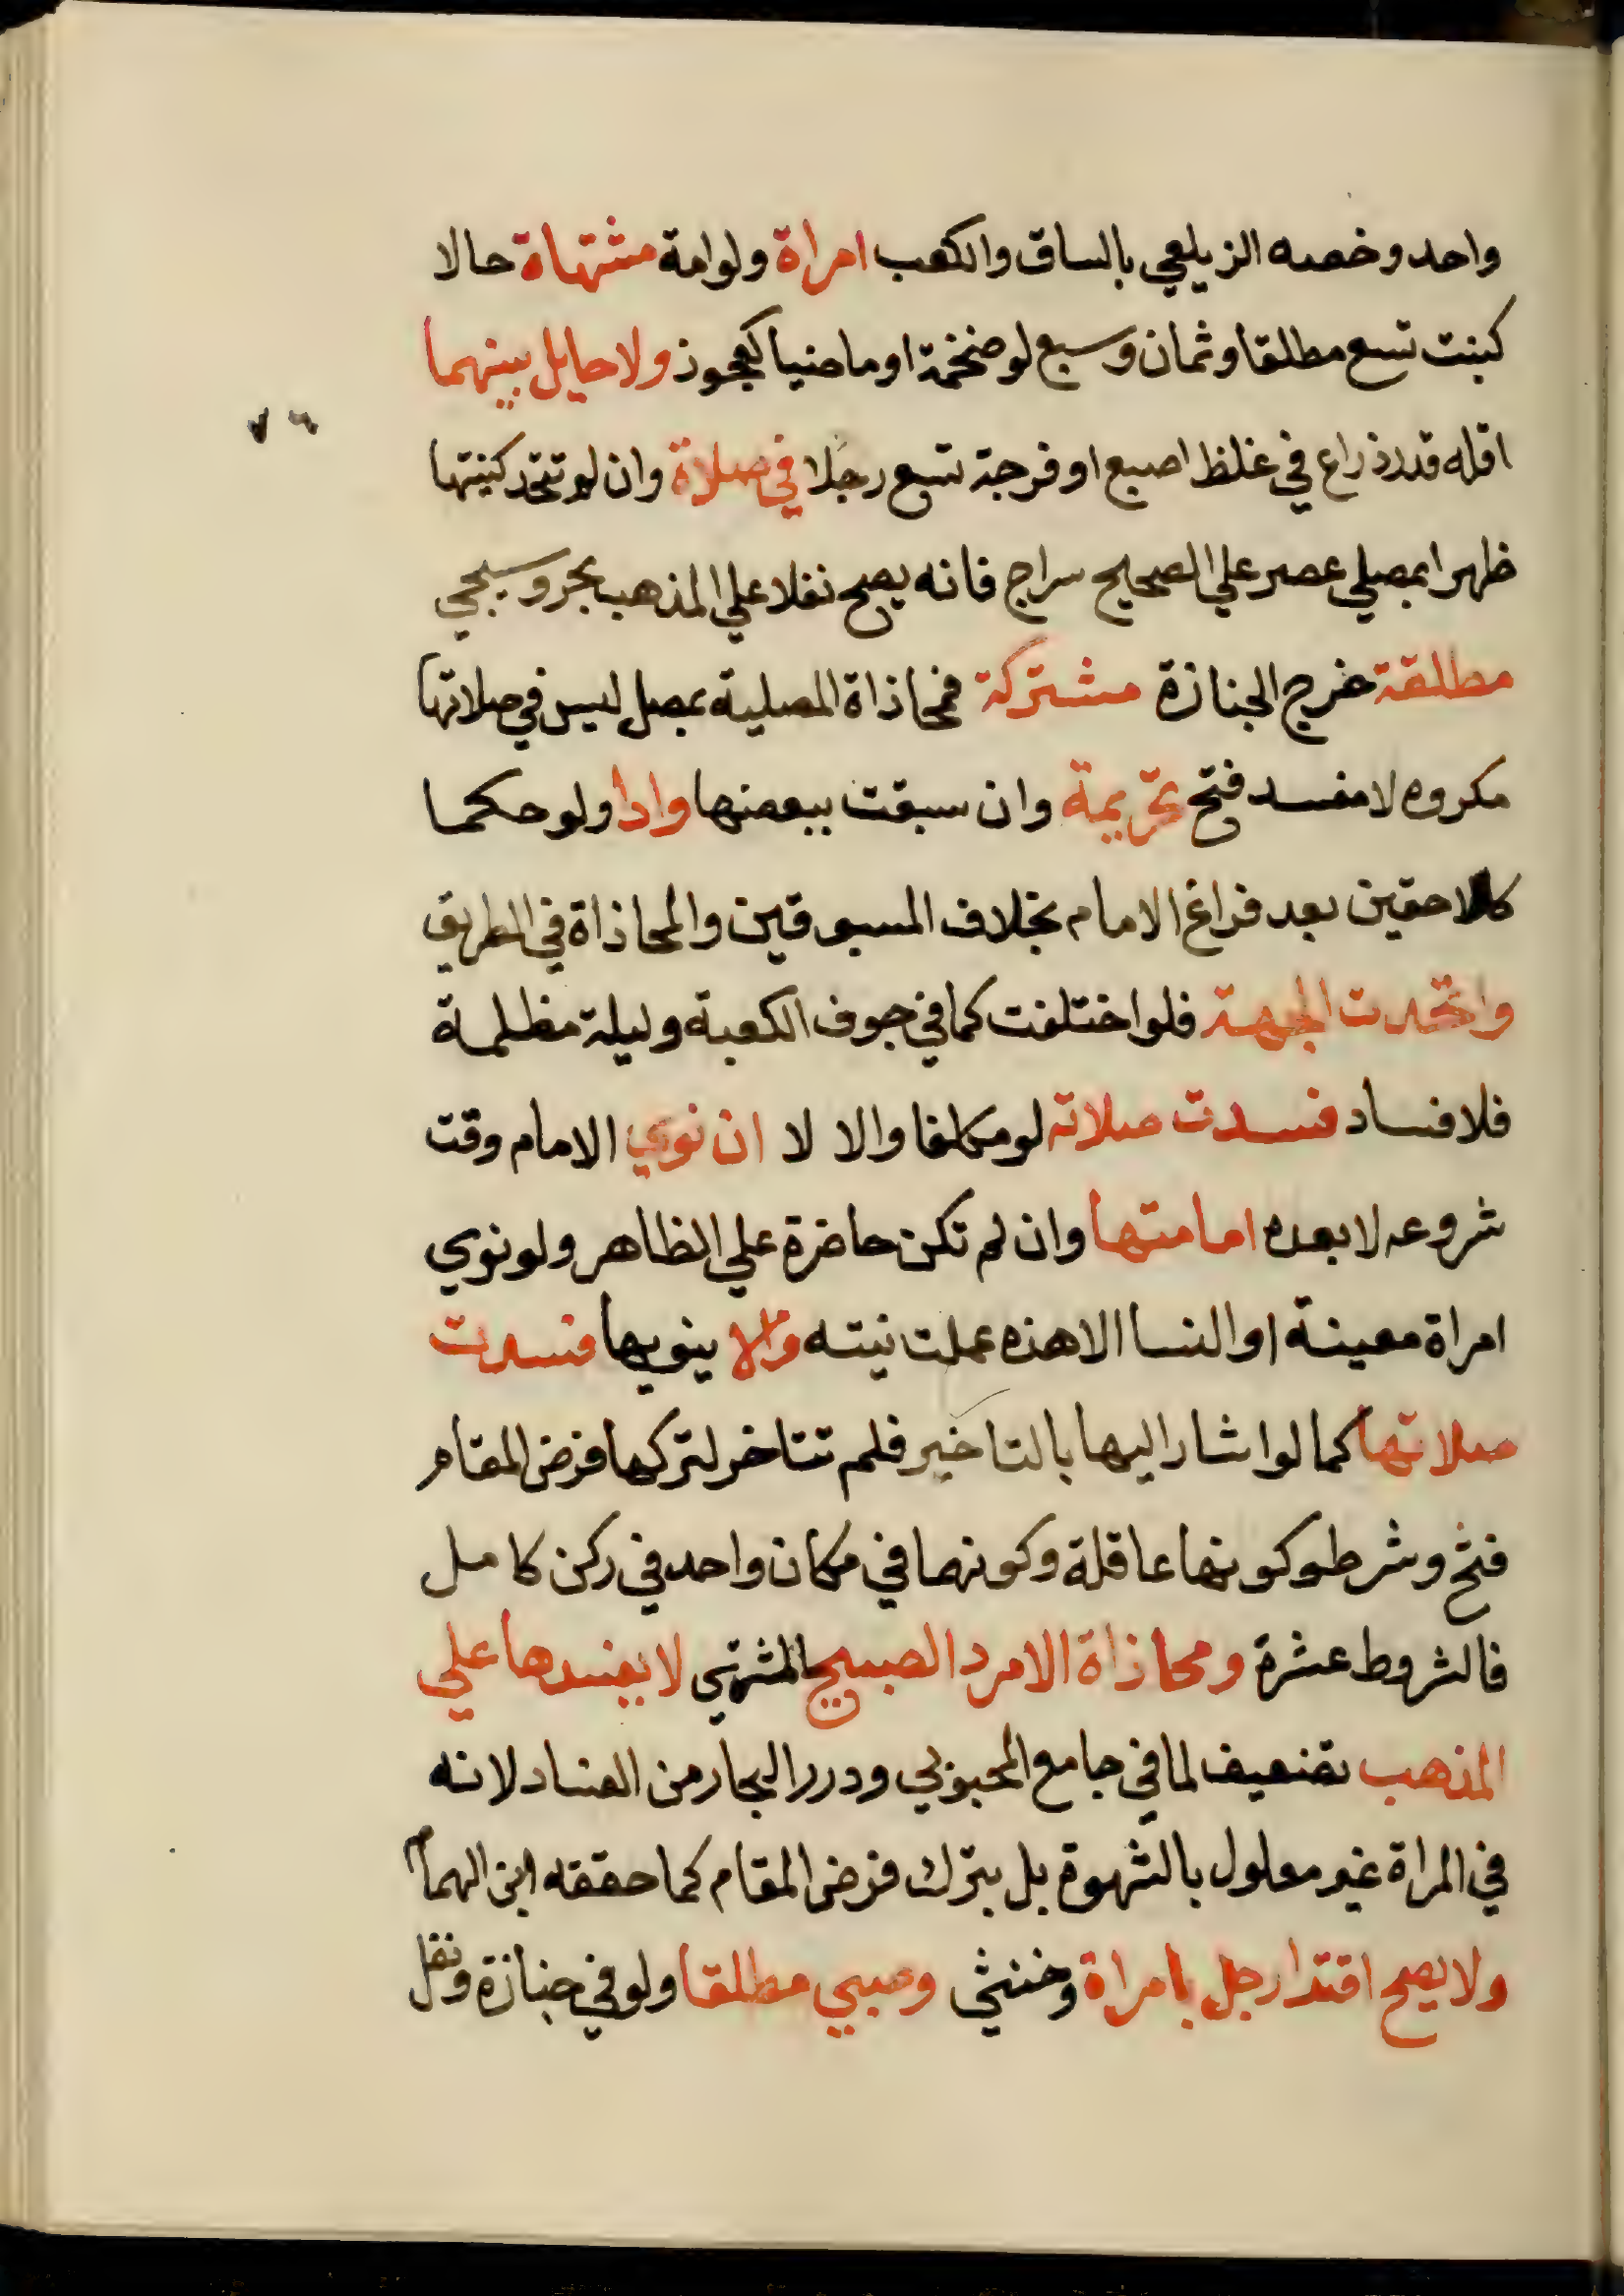 واحد وخصه الزيلعي بالساق والكعب امراة ولوامة مشتهاة حالا
كبنت تسع مطلقا وثمان وسبع لو ضخمة او ماضيا كعجوز ولا حايل بينهما
اقله قدر ذراع في غلظ اصبع او فرجة تسع رجلا في صلاة وان لم تتحد كنيتها
ظهرا بمصلي عصر علي الصحيح سراج فانه يصح نفلا علي المذهب بحر وسيجي
مطلقة خرج الجنازة مشتركة فمحاذاة المصلية بمصل ليس في صلاتها
مكروه لا مفسد فتح تحريمة وان سبقت ببعضها وادا ولو حكما
كالاحقين بعد فراغ الامام بخلاف المسبوقين والمحاذاة في الطريق
واتحدت الجهة فلو اختلفت كما في جوف الكعبة وليلة مظلمة
فلا فساد فسدت صلاته لو مكلفا والا لا ان نوي الامام وقت
شروعه لا بعده امامتها وان لم تكن حاضرة علي الظاهر ولو نوي
امراة معينة او النسا الا هذه عملت نيته والا ينويها فسدت
صلاتها كما لو اشار اليها بالتاخير فلم تتاخر لتركها فرض المقام
فتح وشرطو كونها عاقلة وكونهما في مكان واحد في ركن كامل
فالشروط عشرة ومحاذاة الامرد الصبيح المشتهي لا يفسدها علي
المذهب تضعيف لما في جامع المحبوبي ودرر البحار من الفساد لانه
في المراة غير معلول بالشهوة بل بترك فرض المقام كما حققه ابن الهمام
ولا يصح اقتدا رجل بامراة وخنثي وصبي مطلقا ولو في جنازة ونفل
٧٦